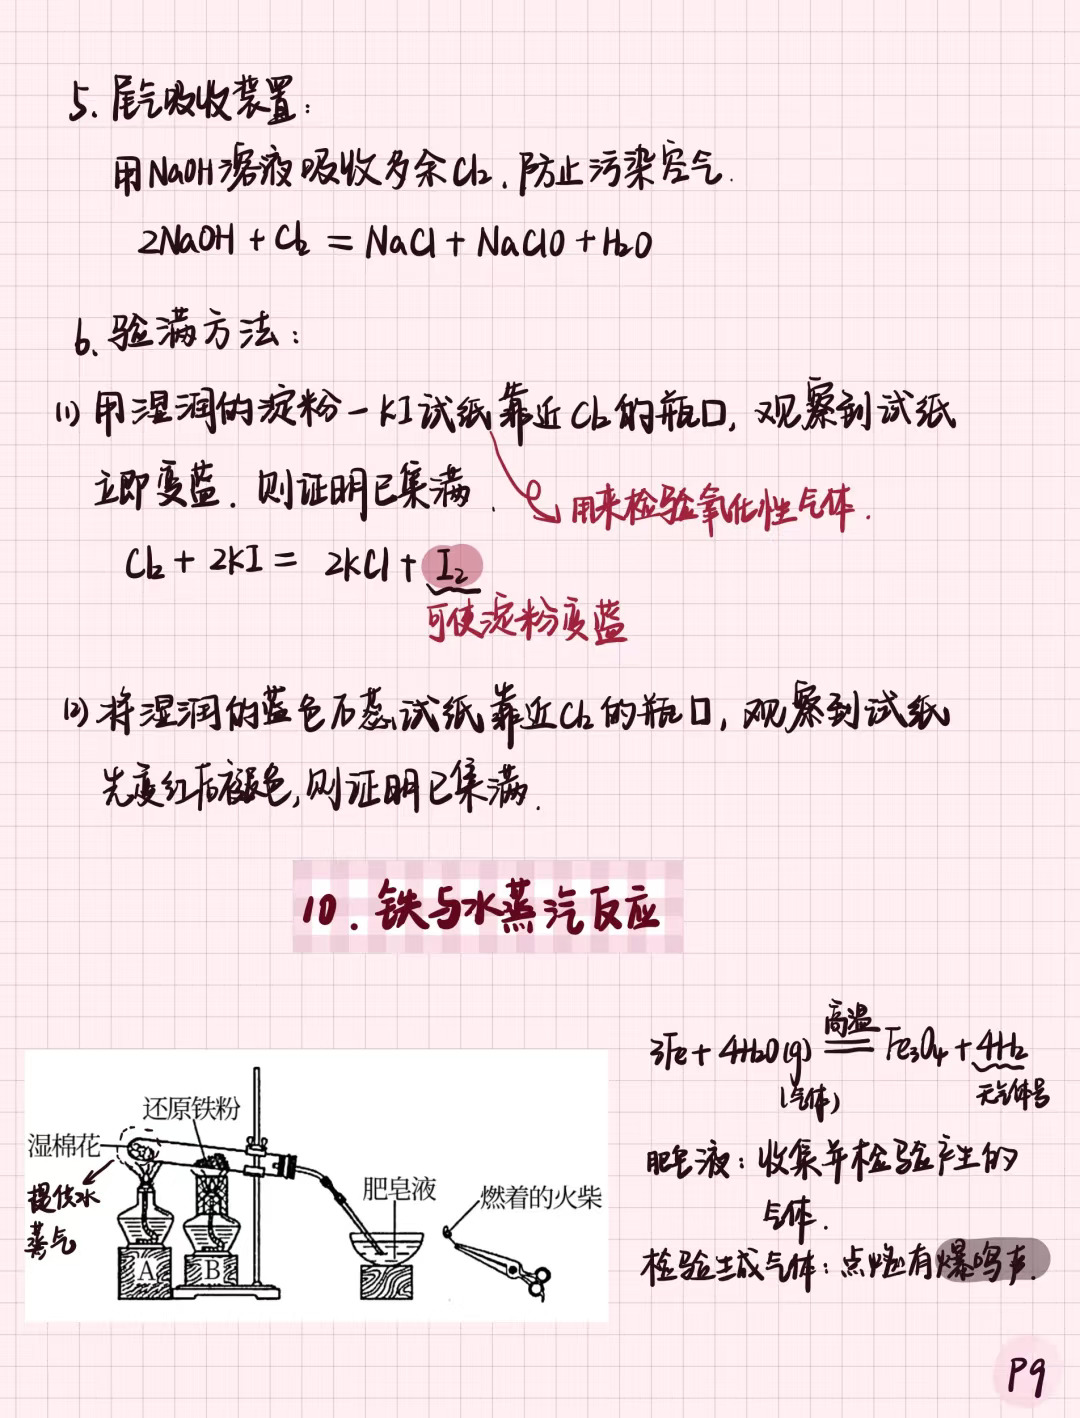 5、尾气吸收装置：
用NaOH溶液吸收多余Cl₂，防止污染空气.
2NaOH + Cl₂ = NaCl + NaClO + H₂O
6、验满方法：
(1) 用湿润的淀粉-KI试纸靠近Cl₂的瓶口，观察到试纸
立即变蓝，则证明已集满.
用来检验氧化性气体.
Cl₂ + 2KI = 2KCl + I₂
可使淀粉变蓝
(2) 将湿润的蓝色石蕊试纸靠近Cl₂的瓶口，观察到试纸
先变红后褪色，则证明已集满.
10. 铁与水蒸汽反应
3Fe + 4H₂O(g) 高温 == Fe₃O₄ + 4H₂
(气体)
无气体号
还原铁粉
湿棉花
提供水
蒸气
肥皂液
燃着的火柴
A
B
肥皂液：收集并检验产生的
气体.
检验生成气体：点燃有爆鸣声.
P9